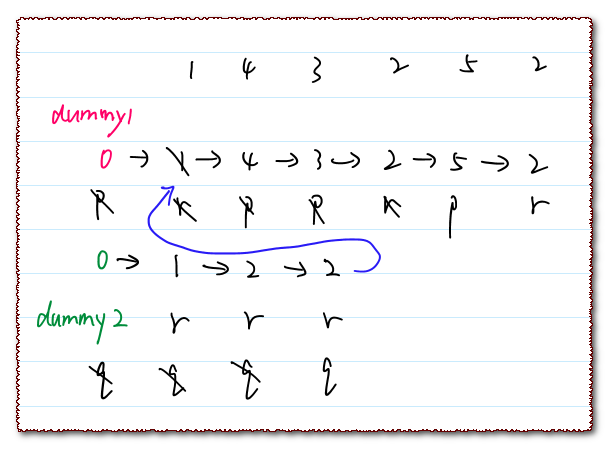 1 4 3 2 5 2
dummy1
0 → 1 → 4 → 3 → 2 → 5 → 2
p r p p r p r
0 → 1 → 2 → 2
dummy2 r r r
q q q q